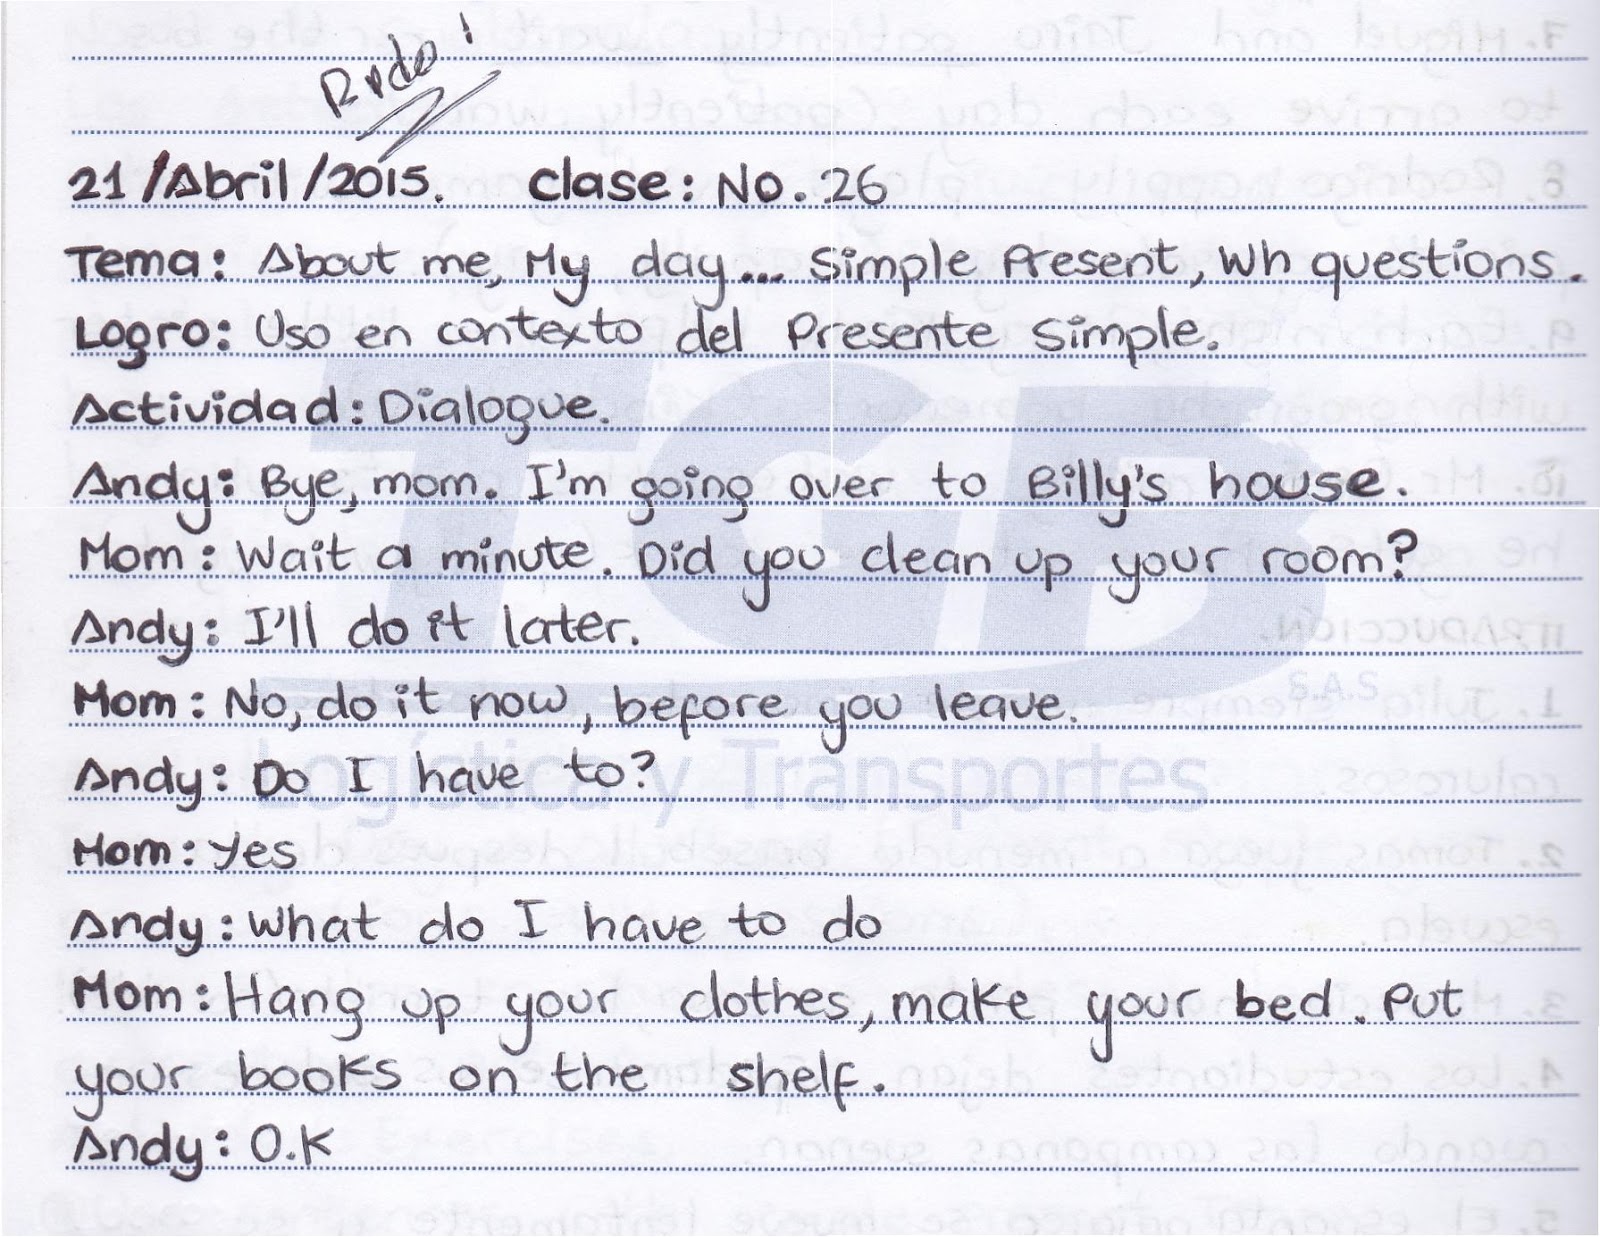 21/Abril/2015. Clase: No. 26
Tema: About me, My day... Simple Present, Wh questions.
Logro: Uso en contexto del Presente Simple.
Actividad: Dialogue.
Andy: Bye, mom. I'm going over to Billy's house.
Mom: Wait a minute. Did you clean up your room?
Andy: I'll do it later.
Mom: No, do it now, before you leave.
Andy: Do I have to?
Mom: Yes
Andy: What do I have to do
Mom: Hang up your clothes, make your bed. Put
your books on the shelf.
Andy: O.K
TGB
S.A.S
Logística y Transportes